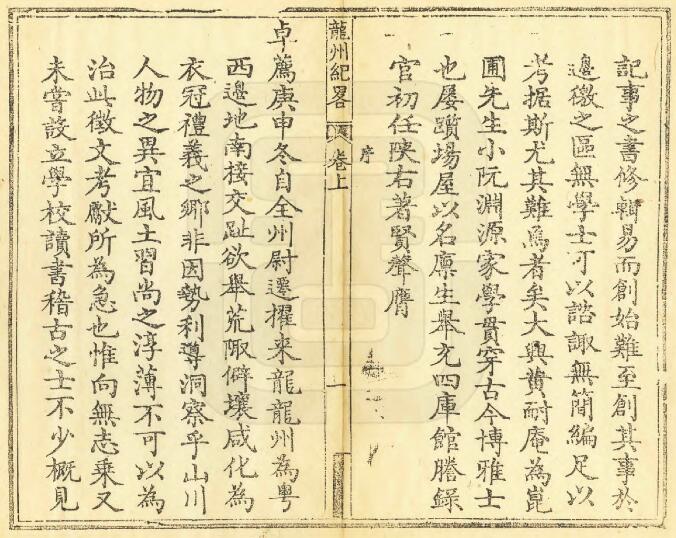 記事之書修輯易而創始難至創其事於
邊徼之區無學士可以諮諏無簡編足以
考据斯尤其難焉者矣大興黃耐庵為崑
圃先生小阮淵源家學貫穿古今博雅士
也屢躓場屋以名廩生舉充四庫館謄錄
官初任陝右著賢聲膺
序
龍州紀畧
卷上
一
卓薦庚申冬自全州尉遷擢來龍龍州為粵
西邊地南接交趾欲舉荒陬僻壤咸化為
衣冠禮義之鄉非因勢利導洞察乎山川
人物之異宜風土習尚之淳薄不可以為
治此徵文考獻所為急也惟向無志乘又
未嘗設立學校讀書稽古之士不少概見